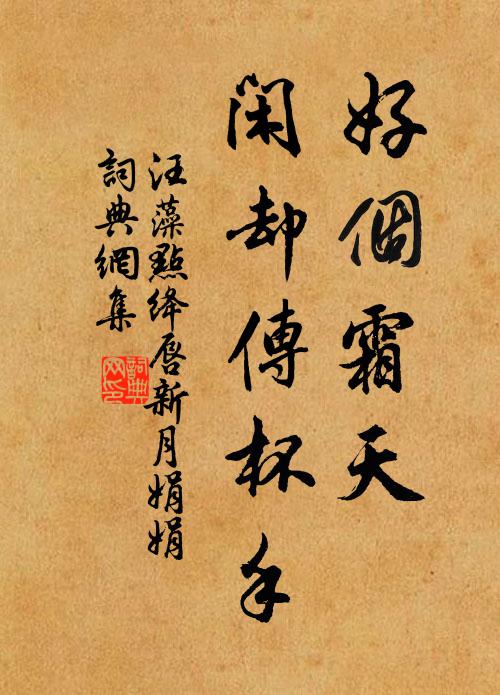 好個霜天
閑却傳杯手
汪藻點絳唇新月娟娟
詞典網集
詞典網印